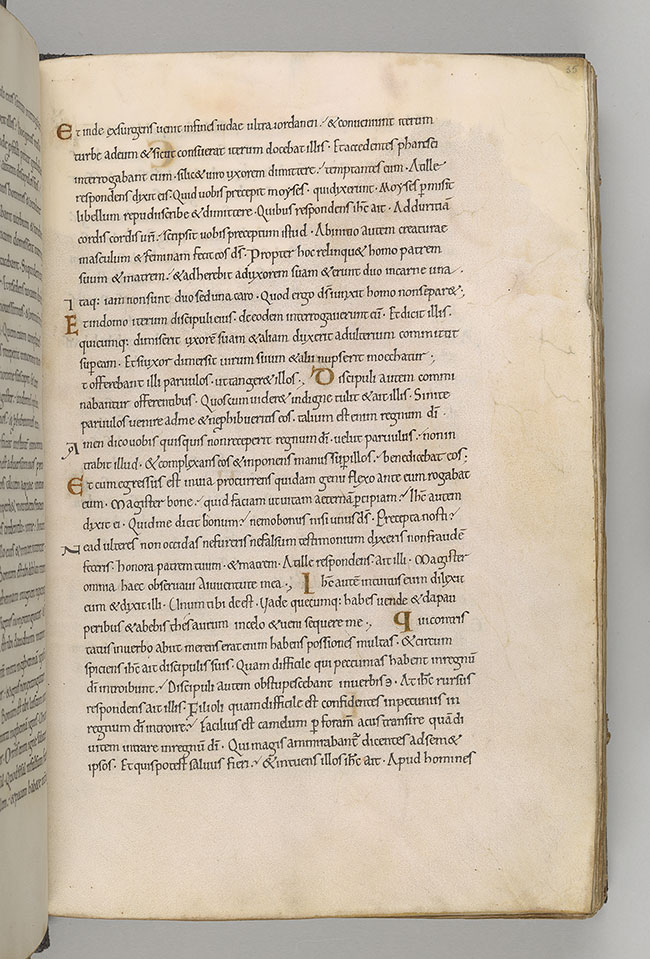 55
Et inde exsurgens uenit infines iudae ultra iordanen. & conueniunt iterum
turbe adeum & sicut consuerat iterum docebat illis. Et accedentes pharisei
interrogabant eum. silic& uiro uxorem dimittere. temptantes eum. Atille
respondens dixit eis. Quid uobis precepit moyses. quidixerunt. Moyses p misit
libellum repudii scribe & dimittere. Quibus respondens ihc ait. Adduritiā
cordis cordis urī. scripsit uobis preceptum istud. Abinitio autem creaturae
masculum & feminam fecit eos ds. Propter hoc relinqu& homo patrem
suum & matrem. & adherebit aduxorem suam & erunt duo incarne una.
Itaq: iam nonsunt duo sed una caro. Quod ergo ds iunxit homo nonsepar&;
Et indomo iterum discipuli eius. deeodem interrogauerunt eū. Et dicit illis.
quicumq: dimiserit uxorē suam & aliam duxerit adulterium committit
sup eam. Et siuxor dimiserit uirum suum & alii nupserit moechatur.
t offerebant illi paruulos. uttanger& illos. Discipuli autem commi
nabantur offerentibus. Quos cum uider& indigne tulit & ait illis. Sinite
paruulos uenire adme & nephibueritis eos. talium est enim regnum dī.
Amen dico uobis quisquis nonreceperit regnum dī. uelut paruulus. non in
trabit illud. & complexans eos & inponens manus sup illos. benedicebat eos;
Et cum egressus est inuia procurrens quidam genu flexo ante eum rogabat
eum. Magister bone. quid faciam ut uitam aeternā percipiam. Ihc autem
dixit ei. Quid me dicit bonum. nemo bonus nisi unus ds. Precepta nosti.
Ne adulteres non occidas ne fureris ne falsum testimonium dixeris non fraudē
feceris. honora patrem tuum & matrem. Atille respondens. ait illi. Magister
omnia haec obseruaui Aiuuentute mea. Ihc autē intuitus eum dilexit
eum & dixit illi. Unum tibi deest. Uade quecumq: habes uende & da pau
peribus & abebis thesaurum incelo & ueni sequere me. qui contris
tatus inuerbo abiit merens erat enim habens possiones multas. & circum
spiciens ihc ait discipulis suis. Quam difficile qui peccunias habent inregnū
dī introibunt. Discipuli autem obstupescebant inuerbis ɔ. At ihc rursus
respondens ait illis. Filioli quam difficile est confidentes inpecuniis in
regnum dī introire. Facilius est camelum p foram acus transire quā di
uitem intrare inregnū dī. Qui magis ammirabant dicentes adsem&
ipsos. Et quis potest saluus fieri. & intuens illos ihc ait. Apud homines